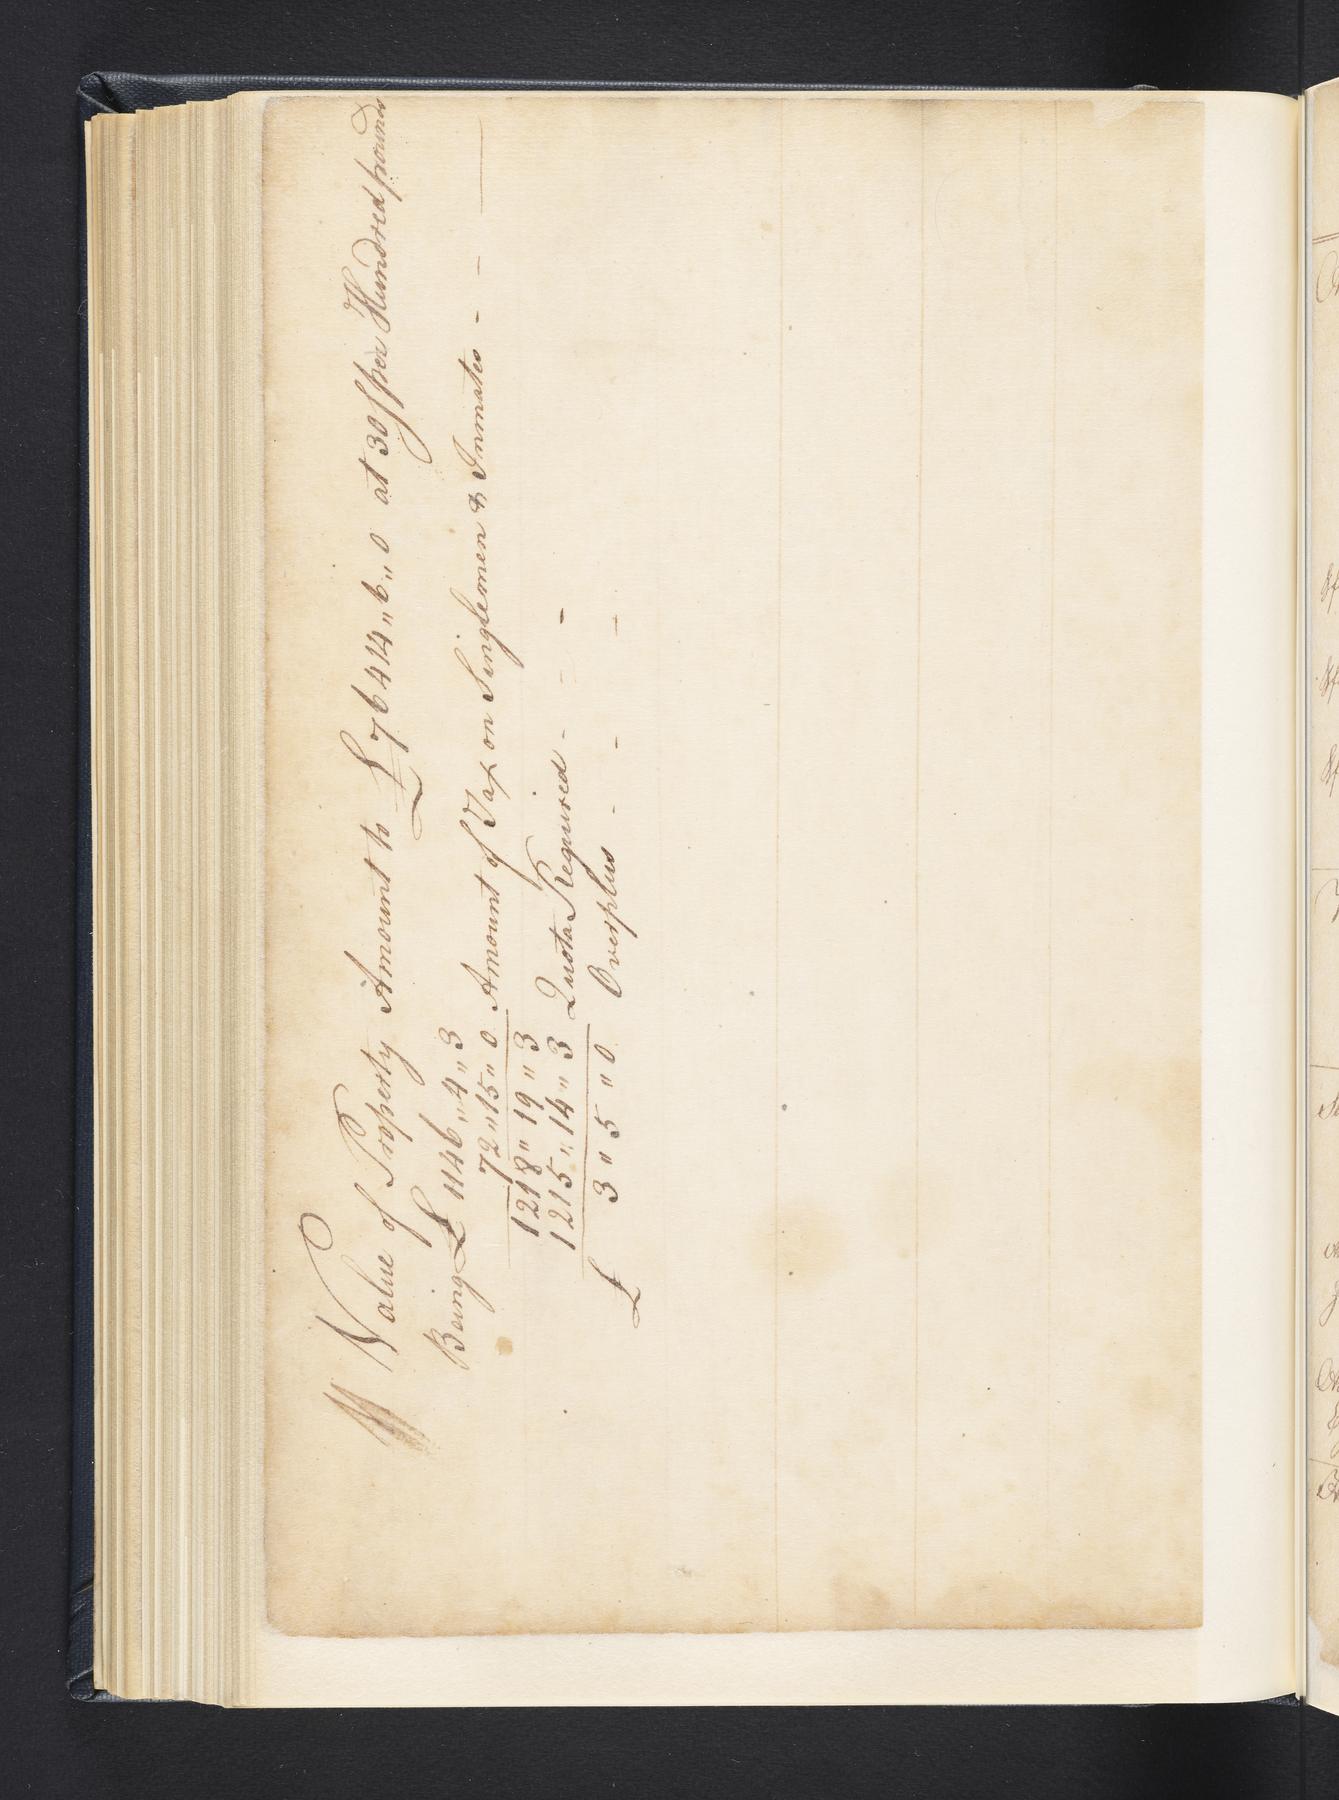 Value of Property Amount to £76414 „ 6 „ 0 at 30/ per Hundred pounds
Being £ 1146 „ 4 „ 3
72 „ 15 „ 0 Amount of Tax on Singlemen & Inmates - - —
1218 „ 19 „ 3
1215 „ 14 „ 3 Quota Required - - -
£ 3 „ 5 „ 0 Overplus - - -